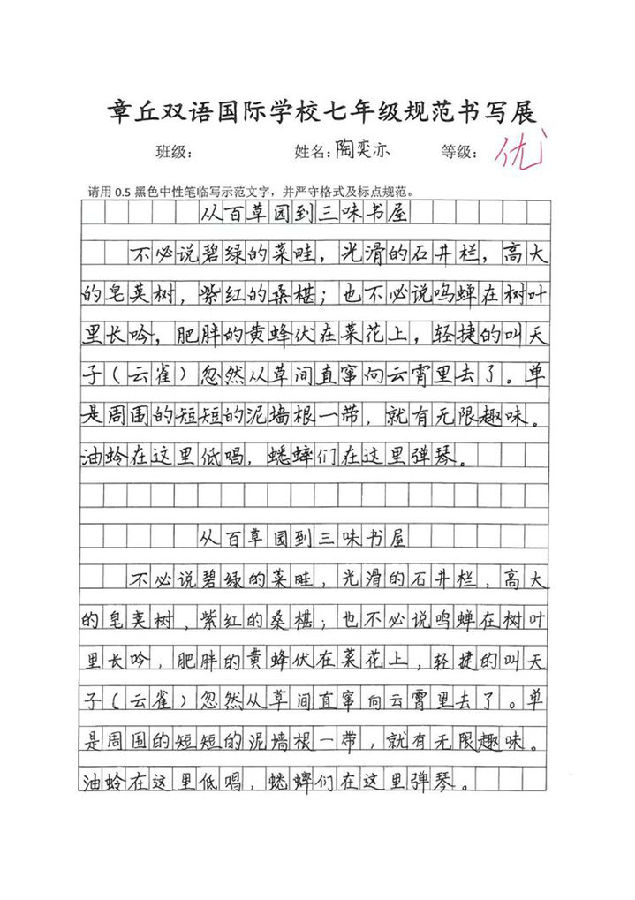 章丘双语国际学校七年级规范书写展
班级： 姓名：陶奕亦 等级：优
请用 0.5 黑色中性笔临写示范文字，并严守格式及标点规范。
从百草园到三味书屋
不必说碧绿的菜畦，光滑的石井栏，高大
的皂荚树，紫红的桑椹；也不必说鸣蝉在树叶
里长吟，肥胖的黄蜂伏在菜花上，轻捷的叫天
子（云雀）忽然从草间直窜向云霄里去了。单
是周围的短短的泥墙根一带，就有无限趣味。
油蛉在这里低唱，蟋蟀们在这里弹琴。
从百草园到三味书屋
不必说碧绿的菜畦，光滑的石井栏，高大
的皂荚树，紫红的桑椹；也不必说鸣蝉在树叶
里长吟，肥胖的黄蜂伏在菜花上，轻捷的叫天
子（云雀）忽然从草间直窜向云霄里去了。单
是周围的短短的泥墙根一带，就有无限趣味。
油蛉在这里低唱，蟋蟀们在这里弹琴。